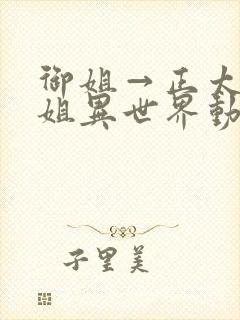 御姐→正太
姐異世界勤
子里美